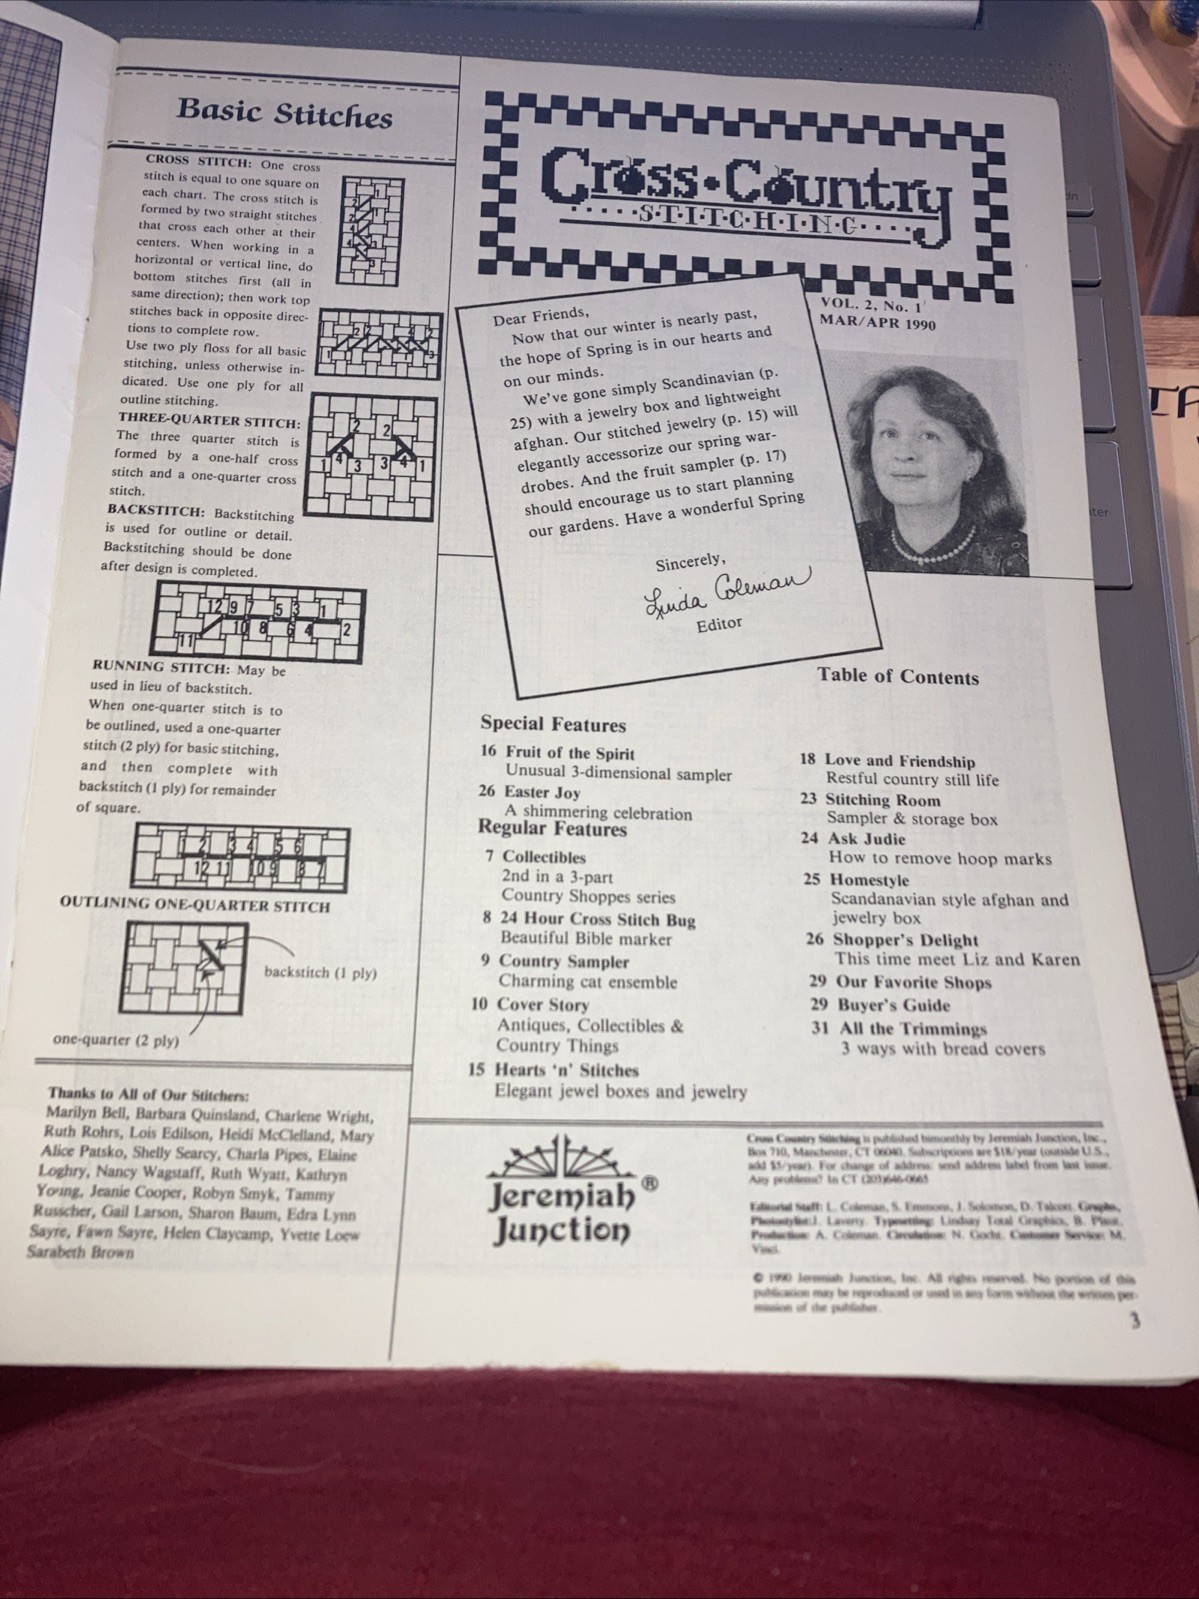 Basic Stitches
CROSS STITCH: One cross
stitch is equal to one square on
each chart. The cross stitch is
formed by two straight stitches
that cross each other at their
centers. When working in a
horizontal or vertical line, do
bottom stitches first (all in
same direction); then work top
stitches back in opposite direc-
tions to complete row.
Use two ply floss for all basic
stitching, unless otherwise in-
dicated. Use one ply for all
outline stitching.
THREE-QUARTER STITCH:
The three quarter stitch is
formed by a one-half cross
stitch and a one-quarter cross
stitch.
2 2
1 4 3 3 4 1
BACKSTITCH: Backstitching
is used for outline or detail.
Backstitching should be done
after design is completed.
12 9 7 5 3 1
11 10 8 6 4 2
RUNNING STITCH: May be
used in lieu of backstitch.
When one-quarter stitch is to
be outlined, used a one-quarter
stitch (2 ply) for basic stitching,
and then complete with
backstitch (1 ply) for remainder
of square.
1 2 3 4 5 6
12 11 10 9 8 7
OUTLINING ONE-QUARTER STITCH
backstitch (1 ply)
one-quarter (2 ply)
Thanks to All of Our Stitchers:
Marilyn Bell, Barbara Quinsland, Charlene Wright,
Ruth Rohrs, Lois Edilson, Heidi McClelland, Mary
Alice Patsko, Shelly Searcy, Charla Pipes, Elaine
Loghry, Nancy Wagstaff, Ruth Wyatt, Kathryn
Young, Jeanie Cooper, Robyn Smyk, Tammy
Russcher, Gail Larson, Sharon Baum, Edra Lynn
Sayre, Fawn Sayre, Helen Claycamp, Yvette Loew
Sarabeth Brown
Cross•Country
S•T•I•T•C•H•I•N•G
VOL. 2, No. 1
MAR/APR 1990
Dear Friends,
Now that our winter is nearly past,
the hope of Spring is in our hearts and
on our minds.
We've gone simply Scandinavian (p.
25) with a jewelry box and lightweight
afghan. Our stitched jewelry (p. 15) will
elegantly accessorize our spring war-
drobes. And the fruit sampler (p. 17)
should encourage us to start planning
our gardens. Have a wonderful Spring
Sincerely,
Linda Coleman
Editor
Table of Contents
Special Features
16 Fruit of the Spirit
Unusual 3-dimensional sampler
26 Easter Joy
A shimmering celebration
Regular Features
7 Collectibles
2nd in a 3-part
Country Shoppes series
8 24 Hour Cross Stitch Bug
Beautiful Bible marker
9 Country Sampler
Charming cat ensemble
10 Cover Story
Antiques, Collectibles &
Country Things
15 Hearts 'n' Stitches
Elegant jewel boxes and jewelry
18 Love and Friendship
Restful country still life
23 Stitching Room
Sampler & storage box
24 Ask Judie
How to remove hoop marks
25 Homestyle
Scandanavian style afghan and
jewelry box
26 Shopper's Delight
This time meet Liz and Karen
29 Our Favorite Shops
29 Buyer's Guide
31 All the Trimmings
3 ways with bread covers
Jeremiah ®
Junction
Cross Country Stitching is published bimonthly by Jeremiah Junction, Inc.,
Box 710, Manchester, CT 06040. Subscriptions are $18/year (outside U.S.,
add $5/year). For change of address: send address label from last issue.
Any problems? In CT (203)646-0665
Editorial Staff: L. Coleman, S. Emmons, J. Solomon, D. Talcott. Graphs,
Photostylist: J. Laverty. Typesetting: Lindsay Total Graphics, B. Plant.
Production: A. Coleman. Circulation: N. Gocht. Customer Service: M.
Vinci.
© 1990 Jeremiah Junction, Inc. All rights reserved. No portion of this
publication may be reproduced or used in any form without the written per-
mission of the publisher.
3